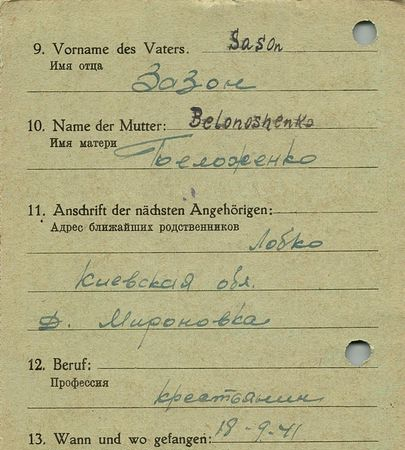 9. Vorname des Vaters. Sason
Имя отца
Зазон
10. Name der Mutter: Belonoshenko
Имя матери
Беложенко
11. Anschrift der nächsten Angehörigen:
Адрес ближайших родственников
Лобко
Киевская обл.
д. Мироновка
12. Beruf:
Профессия
крестьянин
13. Wann und wo gefangen: 18-9-41